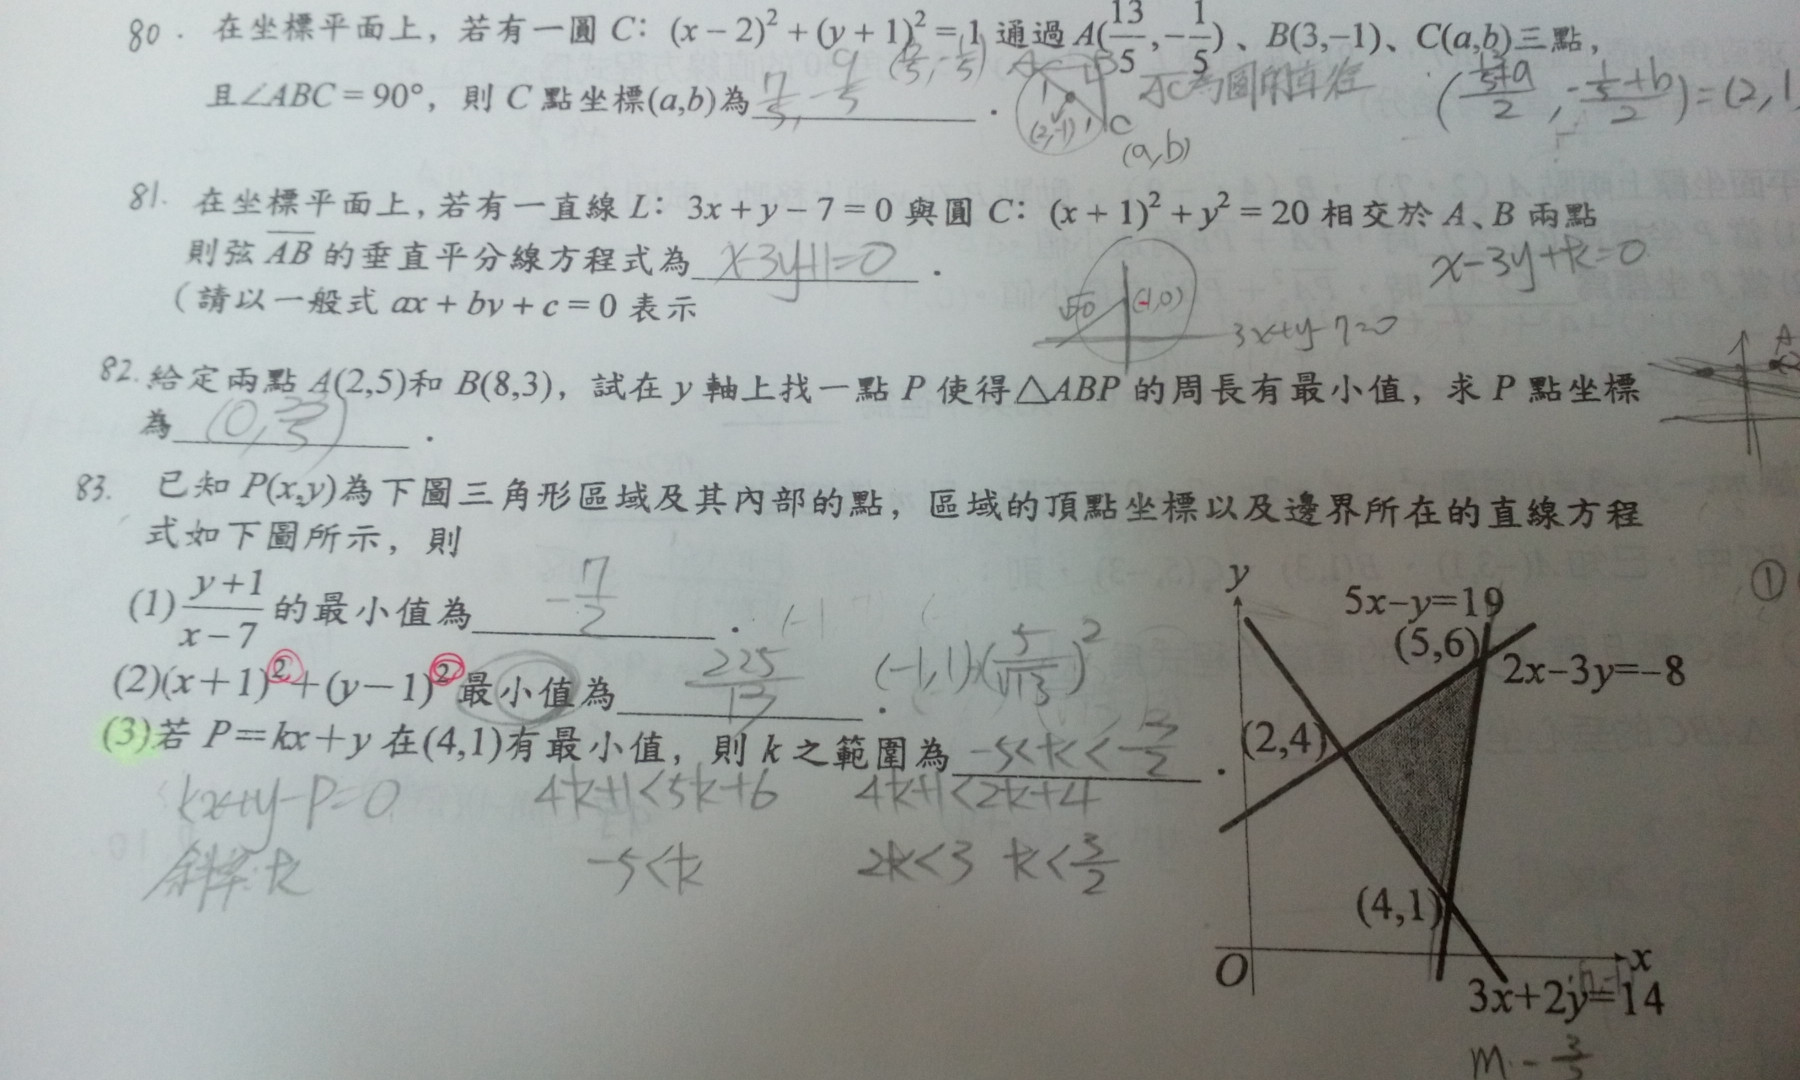 80. 在坐標平面上，若有一圓 C：(x－2)²＋(y＋1)²＝1 通過 A(13/5,－1/5)、B(3,－1)、C(a,b)三點，
且∠ABC＝90°，則 C 點坐標(a,b)為 7/5, －9/5．
AC為圓的直徑
(2,-1)
C
(a,b)
81. 在坐標平面上，若有一直線 L：3x＋y－7＝0 與圓 C：(x＋1)²＋y²＝20 相交於 A、B 兩點
則弦 AB 的垂直平分線方程式為 x-3y+1=0．
x-3y+k=0
（請以一般式 ax＋by＋c＝0 表示
(-1,0)
3x+y-7=0
82. 給定兩點 A(2,5)和 B(8,3)，試在 y 軸上找一點 P 使得△ABP 的周長有最小值，求 P 點坐標
為 (0, /5)．
A
83. 已知 P(x,y)為下圖三角形區域及其內部的點，區域的頂點坐標以及邊界所在的直線方程
式如下圖所示，則
(1) (y＋1)/(x－7) 的最小值為 -7/2．
(2)(x＋1)²＋(y－1)²最小值為 225/13．
(-1,1) (5/√13)²
(3)若 P＝kx＋y 在(4,1)有最小值，則 k 之範圍為 -5<k<．
kx+y-P=0
4k+1<5k+6
4k+1<2k+4
斜率:k
-5<k
2k<3
k<3/2
①
y
5x−y=19
(5,6)
2x−3y=−8
(2,4)
(4,1)
O
x
3x+2y=14